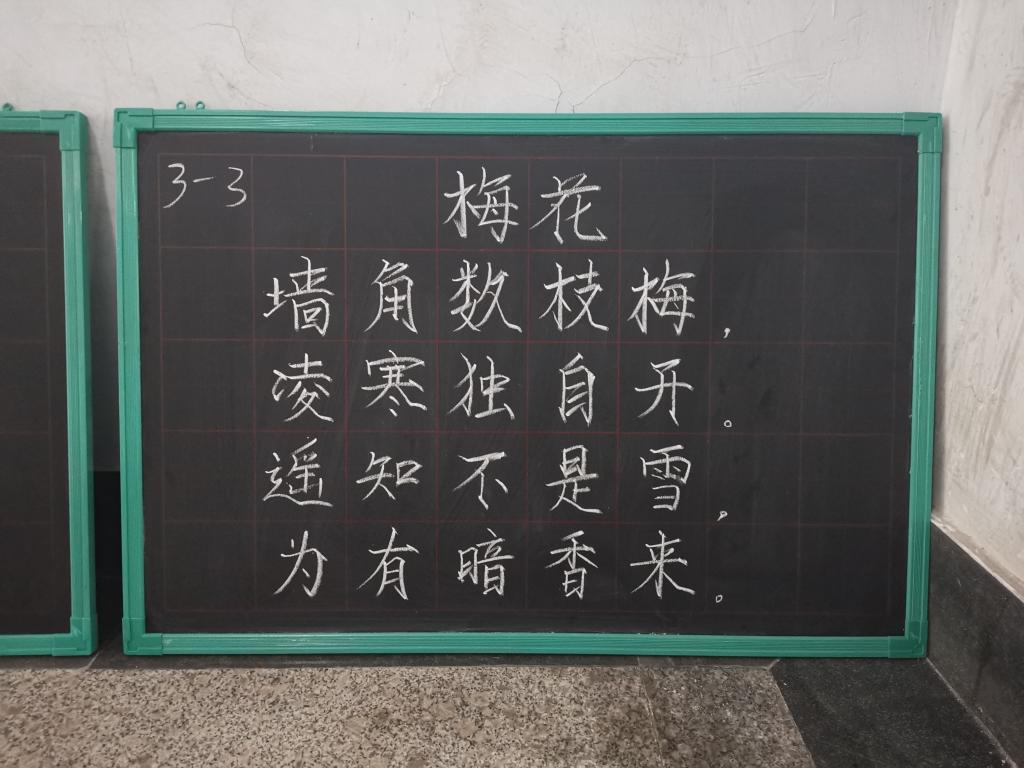 3-3
梅花
墙角数枝梅，
凌寒独自开。
遥知不是雪，
为有暗香来。